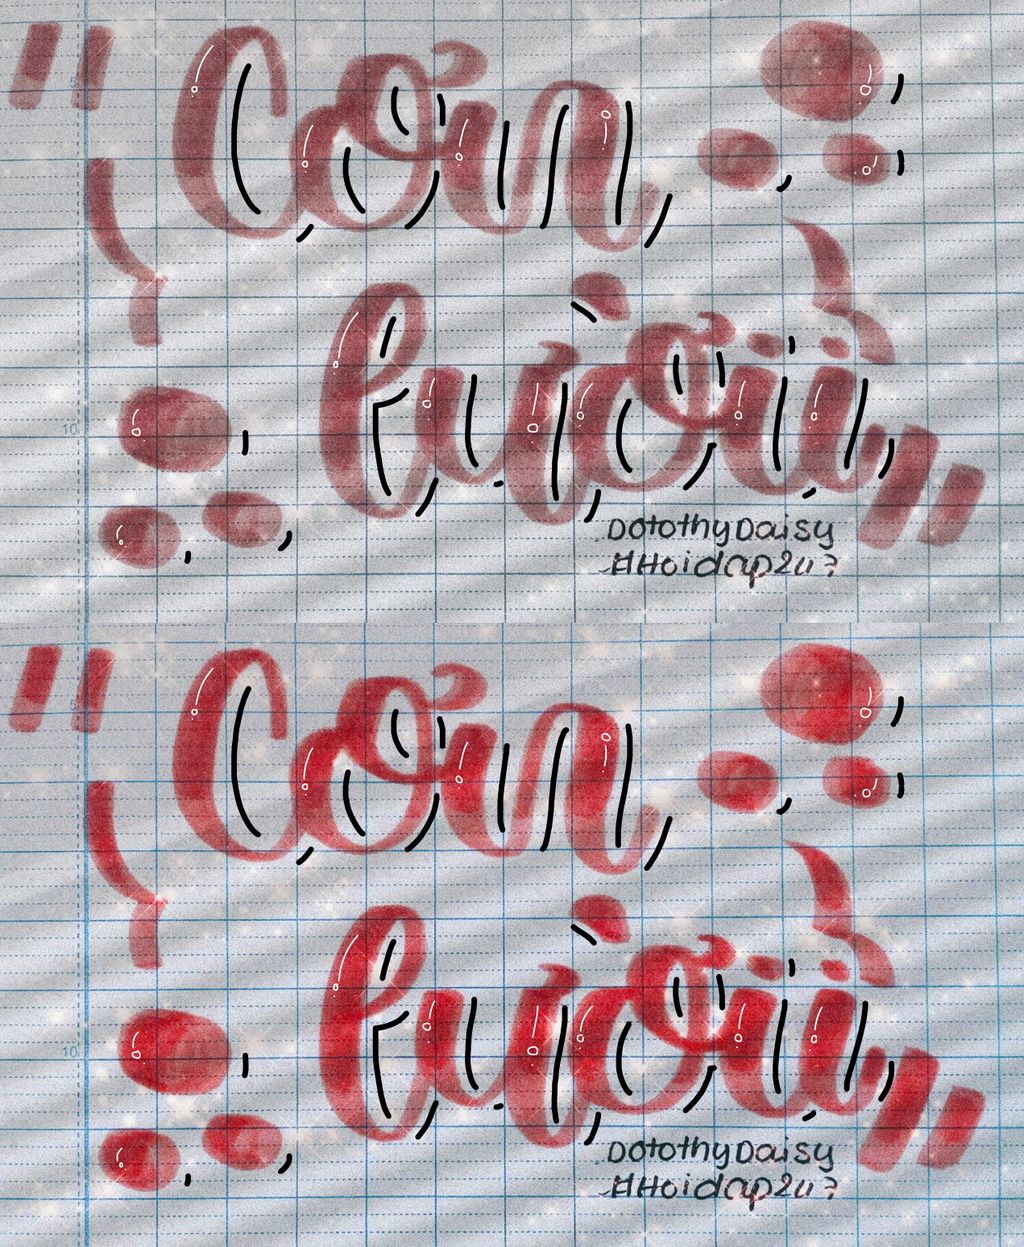 "Cơn
lườii"
DotothyDaisy
#Hoidap247
"Cơn
lườii"
DotothyDaisy
#Hoidap247